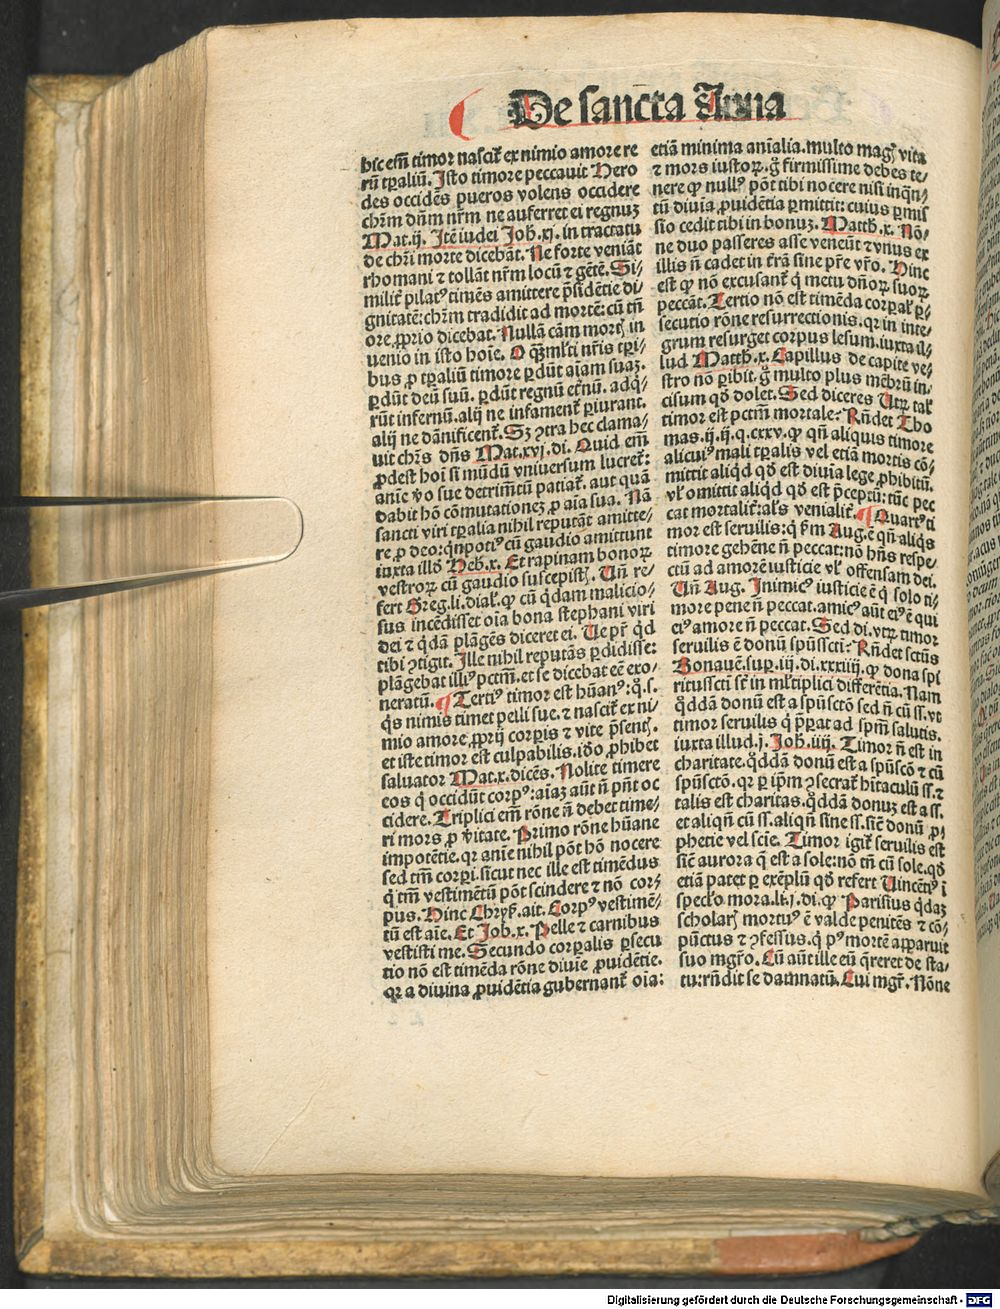 De sancta Anna
hic em̄ timor nascit̄ ex nimio amore re
rū tꝑaliū. Isto timore peccauit Hero
des occidēs pueros volens occidere
chr̄m dn̄m nr̄m ne auferret ei regnuȝ
Mat.ij. Itē iudei Joh̄.xj. in tractatu
de chr̄i morte dicebāt. Ne forte veniāt
rhomani ⁊ tollāt nr̄m locū ⁊ gētē. Si⸗
milit̄ pilatꝰ timēs amittere p̄sidētie di⸗
gnitatē: chr̄m tradidit ad mortē: cū tn̄
ore ꝓprio dicebat. Nullā cām mortꝭ in
uenio in isto hoīe. O qȝml̄ti nr̄is tꝑi⸗
bus ꝓ tꝑaliū timore ꝑdūt aīam suaȝ.
ꝑdūt deū suū. ꝑdūt regnū et̄nū. adq̄⸗
rūt infernū. alij ne infament̄ ꝑiurant.
alij ne dānificent̄. Sȝ ꝯtra hec clama⸗
uit chr̄s dn̄s Mat.xvj. di. Quid em̄
ꝓdest hoī si mūdū vniuersum lucret̄:
anīe v̄o sue detrim̄tū patiat̄. aut quā
dabit hō cōmutationeȝ ꝓ aīa sua. Nā
sancti viri tꝑalia nihil reputāt amitte⸗
re ꝓ deo: qn̄potiꝰ cū gaudio amittunt
iuxta illō Heb̄.x. Et rapinam bonoꝝ
vestroꝝ cū gaudio suscepistꝭ. Un̄ re⸗
fert Greg.li.dial̄. ꝙ cū q̄dam malicio⸗
sus incēdisset oīa bona stephani viri
dei ⁊ q̄dā plāgēs diceret ei. Ue pr̄ qd̄
tibi ꝯtigit. Ille nihil reputās ꝑdidisse:
plāgebat illiꝰ pctm̄. et se dicebat eē exo⸗
neratū. ¶ Tertiꝰ timor est hūanꝰ: q̄.s.
q̄s nimis timet pelli sue. ⁊ nascit̄ ex ni⸗
mio amore ꝓprij corꝑis ⁊ vite p̄sentꝭ.
et iste timor est culpabilis. iđo ꝓhibet
saluator Mat.x. dicēs. Nolite timere
eos q̄ occidūt corpꝰ: aīaȝ aūt n̄ pn̄t oc
cidere. Triplici em̄ rōne n̄ debet time⸗
ri mors ꝓ v̄itate. Primo rōne hūane
impotētie. qꝛ anīe nihil pōt hō nocere
sed tm̄ corꝑi. sicut nec ille est timēdus
q̄ tm̄ vestimētū pōt scindere ⁊ nō cor⸗
pus. Hinc Chryſ. ait. Corpꝰ vestimē⸗
tū est aīe. Et Job.x. Pelle ⁊ carnibus
vestisti me. Secundo corꝑalis ꝑsecu
tio nō est timēda rōne diuīe ꝓuidētie.
qꝛ a diuina ꝓuidētia gubernant̄ oīa:
etiā minima anīalia. multo magꝭ vita
⁊ mors iustoꝝ. g̊ firmissime debes te⸗
nere ꝙ nullꝰ pōt tibi nocere nisi inqn̄⸗
tū diuīa ꝓuidētia ꝑmittit: cuius ꝑmis
sio cedit tibi in bonuȝ. Matth̄.x. Nō⸗
ne duo passeres asse veneūt ⁊ vnus ex
illis n̄ cadet in t̄rā sine pr̄e vr̄o. Hinc
est ꝙ nō excusant̄ q̄ metu dn̄oꝝ suoꝝ
peccāt. Tertio nō est timēda corꝑal̄ ꝑ⸗
secutio rōne resurrectionis. qꝛ in inte⸗
grum resurget corpus lesum. iuxta il⸗
lud Matth̄.x. Capillus de capite ve⸗
stro nō ꝑibit. g̊ multo plus mēbrū in⸗
cisum qđ dolet. Sed diceres Utꝝ tal̄
timor est pctm̄ mortale? Rn̄det Tho
mas.ij.ij.q.cxxv. ꝙ qn̄ aliquis timore
alicuiꝰ mali tꝑalis vel etiā mortis cō⸗
mittit aliqd qđ est diuīa lege ꝓhibitū.
vl̄ omittit aliqd qđ est p̄ceptū: tūc pec
cat mortalit̄: al̄s venialit̄. ¶ Quartꝰ ti
mor est seruilis: q̄ ẜm Aug. ē qn̄ aliqs
timore gehēne n̄ peccat: nō hn̄s respe⸗
ctū ad amorē iusticie vl̄ offensam dei.
Un̄ Aug. Inimicꝰ iusticie ē q̄ solo ti⸗
more pene n̄ peccat. amicꝰ aūt eiꝰ ē qui
eiꝰ amore n̄ peccat. Sed di. vtꝝ timor
seruilis ē donū spūsscti? Rn̄det sctūs
Bonauē. suꝑ.iij.di.xxxiiij. ꝙ dona spi
ritussctī sr̄ in ml̄tiplici differētia. Nam
q̊ddā donū est a spūsctō sed n̄ cū ss. vt
timor seruilis q̄ p̄ꝑat ad spm̄ salutis.
iuxta illud.j. Joh̄.iiij. Timor n̄ est in
charitate. q̊ddā donū est a spūsctō ⁊ cū
spūsctō. qꝛ ꝑ ip̄m ꝯsecrat̄ hītaculū ss. ⁊
talis est charitas. q̊ddā donuȝ est a ss.
et aliqn̄ cū ss. aliqn̄ sine ss. sic̄ donū ꝓ⸗
phetie vel scīe. Timor igit̄ seruilis est
sic̄ aurora q̄ est a sole: nō tn̄ cū sole. qđ
etiā patet ꝑ exēplū qđ refert Uincētiꝰ ī
spec̄lo mora.li.j.di. ꝙ Parisius q̄daȝ
scholarꝭ mortuꝰ ē valde penitēs ⁊ cō⸗
pūctus ⁊ ꝯfessus. q̄ pꝰ mortē apparuit
suo mgr̄o. Cū aūt ille eū q̄reret de sta⸗
tu: rn̄dit se damnatū. Cui mgr̄. Nōne
Digitalisierung gefördert durch die Deutsche Forschungsgemeinschaft - DFG